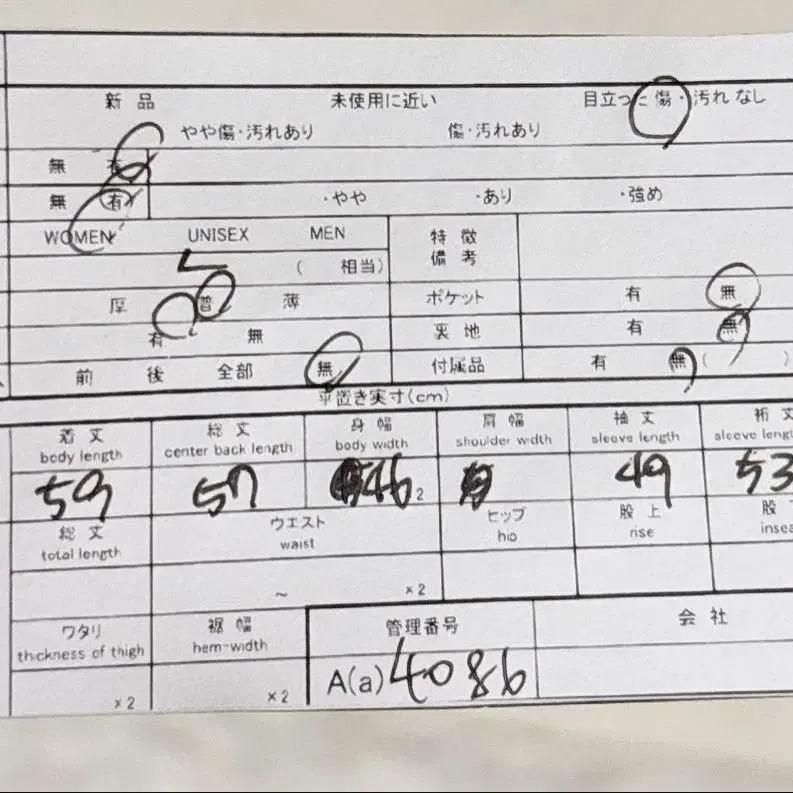 新品 未使用に近い 目立った傷・汚れなし
やや傷・汚れあり 傷・汚れあり
無 有
無 有 ・やや ・あり ・強め
WOMEN UNISEX MEN 特徴
備考
L ( 相当)
厚 普 薄 ポケット 有 無
有 無 裏地 有 無
前 後 全部 無 付属品 有 無 ( )
平置き実寸(cm)
着丈 総丈 身幅 肩幅 袖丈 裄丈
body length center back length body width shoulder width sleeve length sleeve leng
59 57 46 2 49 53
総丈 ウエスト ヒップ 股上 股
total length waist hip rise insea
~ ×2
ワタリ 裾幅 管理番号 会社
thickness of thigh hem-width
×2 ×2 A(a) 4086